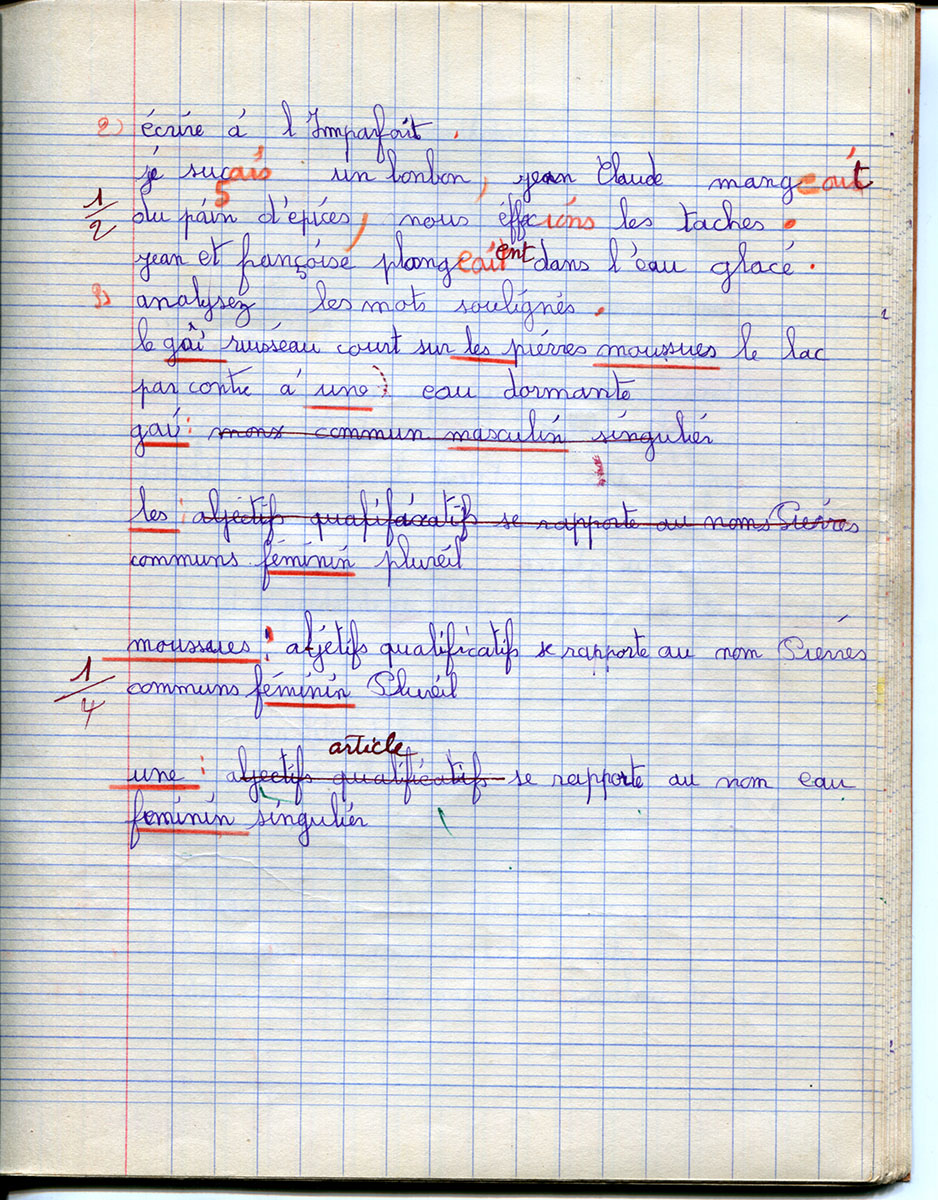 2) écrire à l'Imparfait.
je suçais un bonbon, jean Claude mangeait
1/2 du pain d'épices, nous éffacions les taches.
jean et françoise plongeaient dans l'eau glacé.
3) analysez les mots soulignés.
le gai ruisseau court sur les pierres moussues le lac
par contre à une eau dormante
gai : nons commun masculin singulier
les : adjectifs qualificatifs se rapporte au noms Pierres
communs féminin pluréil
moussues : adjetifs qualificatifs se rapporte au nom Pierres
1/4 communs féminin Pluréil
article
une : adjectifs qualificatifs se rapporte au nom eau
feminin singulier